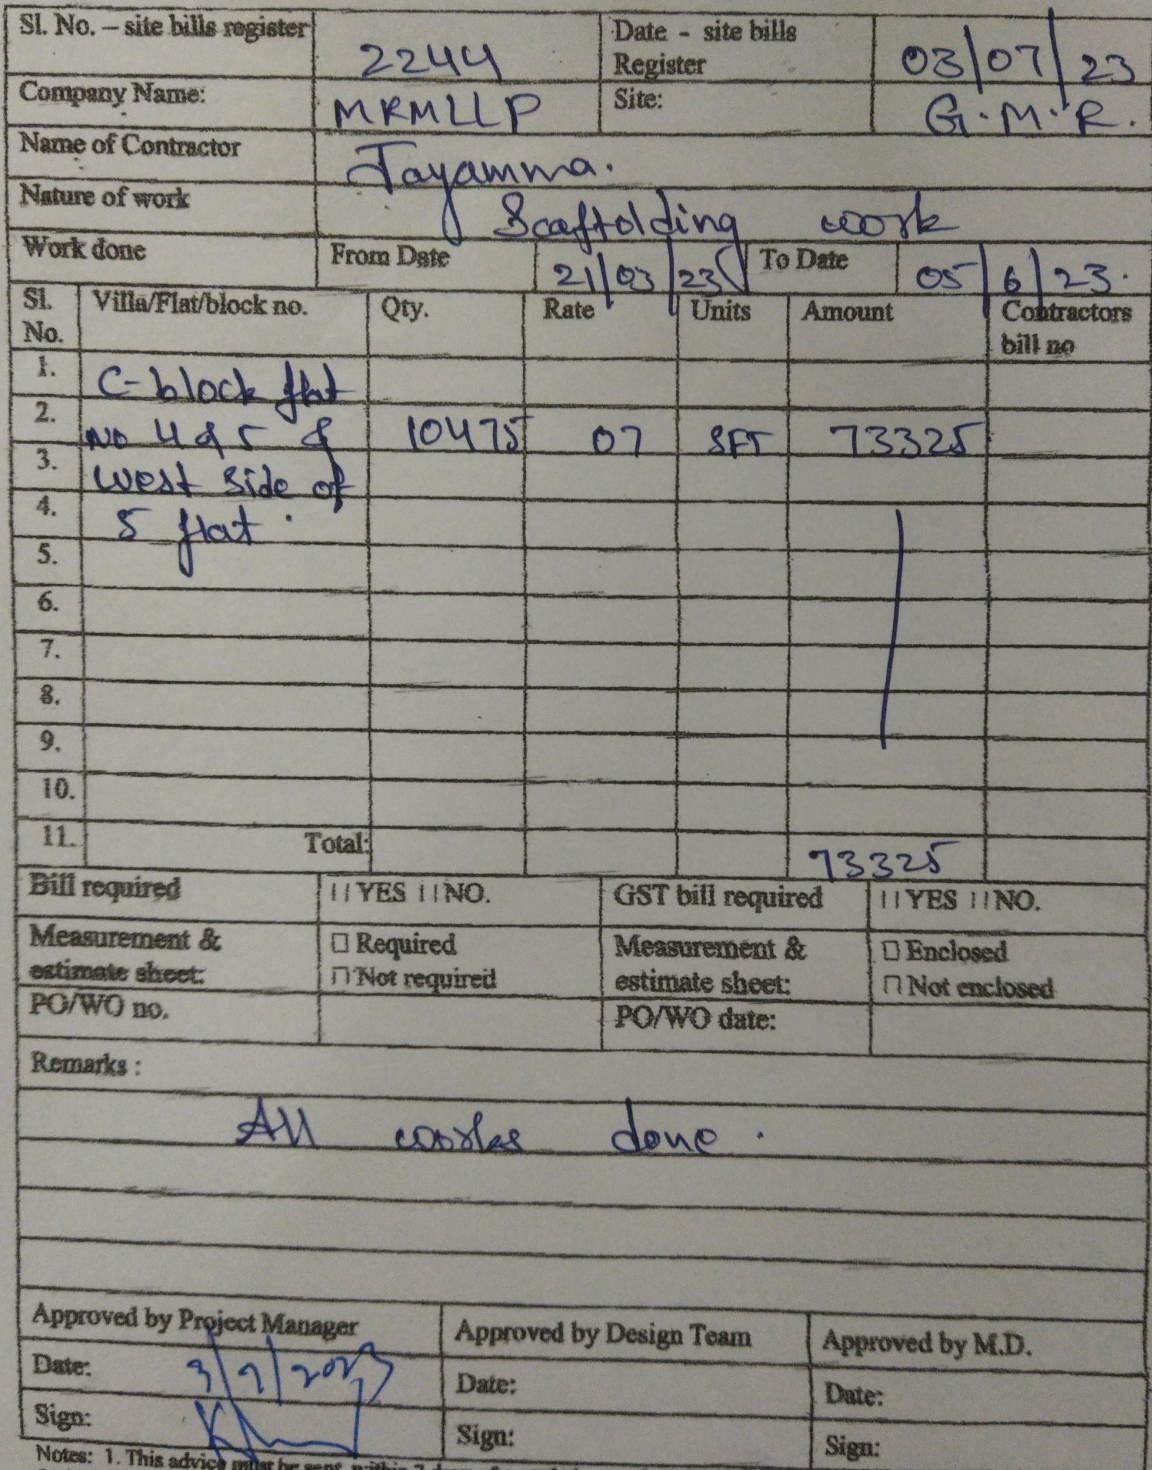 Sl. No. – site bills register 2244 Date - site bills Register 03/07/23
Company Name: MRMLLP Site: G.M.R.
Name of Contractor Jayamma.
Nature of work Scaffolding work
Work done From Date 21/03/23 To Date 05/6/23.
Sl. No. Villa/Flat/block no. Qty. Rate Units Amount Contractors bill no
1. C-block flat
2. no 4 & 5 & 10475 07 SFT 73325
3. west side of
4. 5 flat.
5.
6.
7.
8.
9.
10.
11. Total: 73325
Bill required YES NO. GST bill required YES NO.
Measurement & estimate sheet: □ Required □ Not required Measurement & estimate sheet: □ Enclosed □ Not enclosed
PO/WO no. PO/WO date:
Remarks :
All works done.
Approved by Project Manager Approved by Design Team Approved by M.D.
Date: 3/7/2023 Date: Date:
Sign: Sign: Sign:
Notes: 1. This advice must be sent within